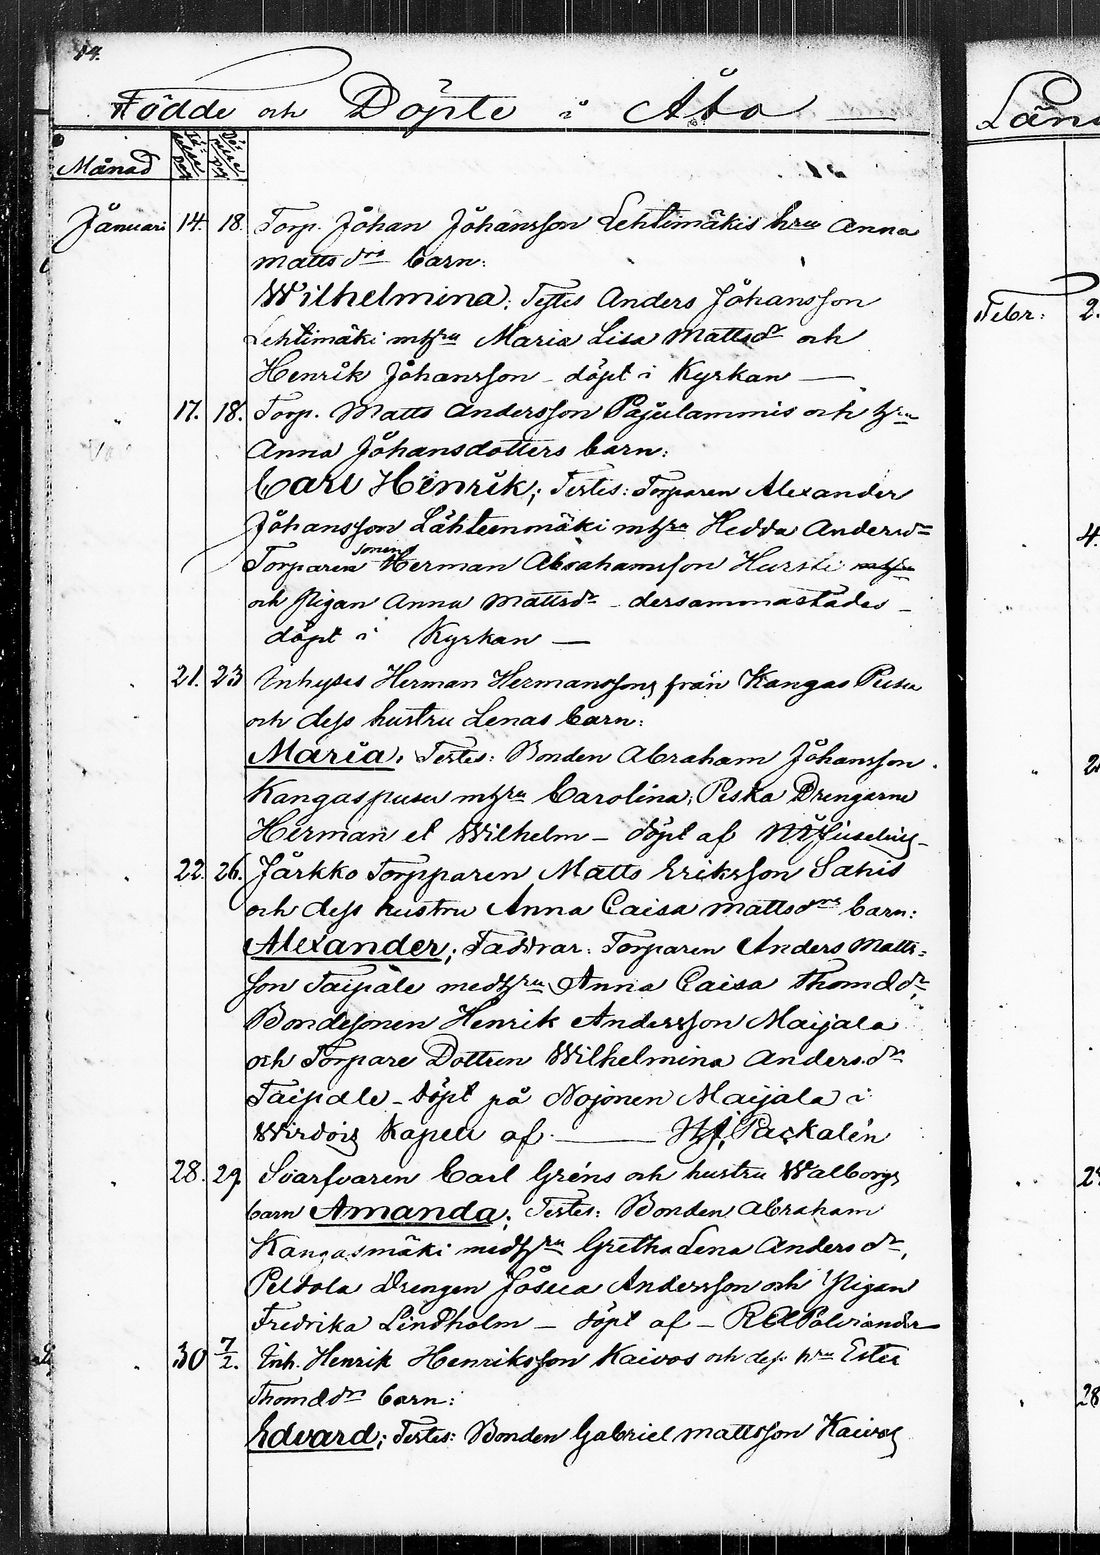 14.
Födde och Döpte i Åbo
Månad
Januari 14. 18. Torp. Johan Johansson Lehtimäkis hru Anna
Mattsdrs barn:
Wilhelmina; Testes Anders Johansson
Lehtimäki mhru Maria Lisa Mattsdr och
Henrik Johansson – döpt i Kyrkan —
17. 18. Torp. Matts Andersson Pajulammis och hru
Anna Johansdotters barn:
Carl Henrik; Testis: Torparen Alexander
Johansson Lähteenmäki mhru Hedda Andersdr
Torparesonen Herman Abrahamsson Hursti mhru
och Pigan Anna Mattsdr – dersammastädes –
döpt i Kyrkan —
21. 23 Inhyses Herman Hermanssons från Kangas Pusu
och dess hustru Lenas barn:
Maria; Testes: Bonden Abraham Johansson
Kangaspusu mhru Carolina; Peska Drengarne
Herman et Wilhelm – döpt af
22. 26. Jårkko Torpparen Matts Eriksson Sahis
och dess hustru Anna Caisa Mattsdrs barn:
Alexander; Faddrar: Torparen Anders Matts-
son Taipale medhru Anna Caisa Thomddr,
Bondesonen Henrik Andersson Maijala
och Torpare Dottren Wilhelmina Andersdr
Taipale – döpt på Nojonen Maijala i
Wirdois Kapell af — Packalén
28. 29 Svarfvaren Carl Gréns och hustru Walborgs
barn Amanda; Testes: Bonden Abraham
Kangasmäki medhru Gretha Lena Andersdr,
Peldola Drengen Josua Andersson och Pigan
Fredrika Lindholm – döpt af – Palviander
30 7/2. Inh. Henrik Henriksson Kaivos och dess hru Ester
Thomddrs barn:
Edvard; Testes: Bonden Gabriel Mattsson Kaivos
Febr: 2.
4.
28